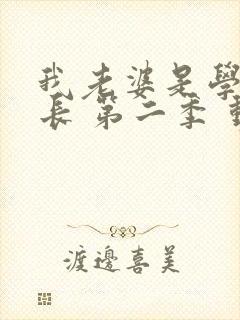 我老婆是學
長 第二季
渡邊喜美